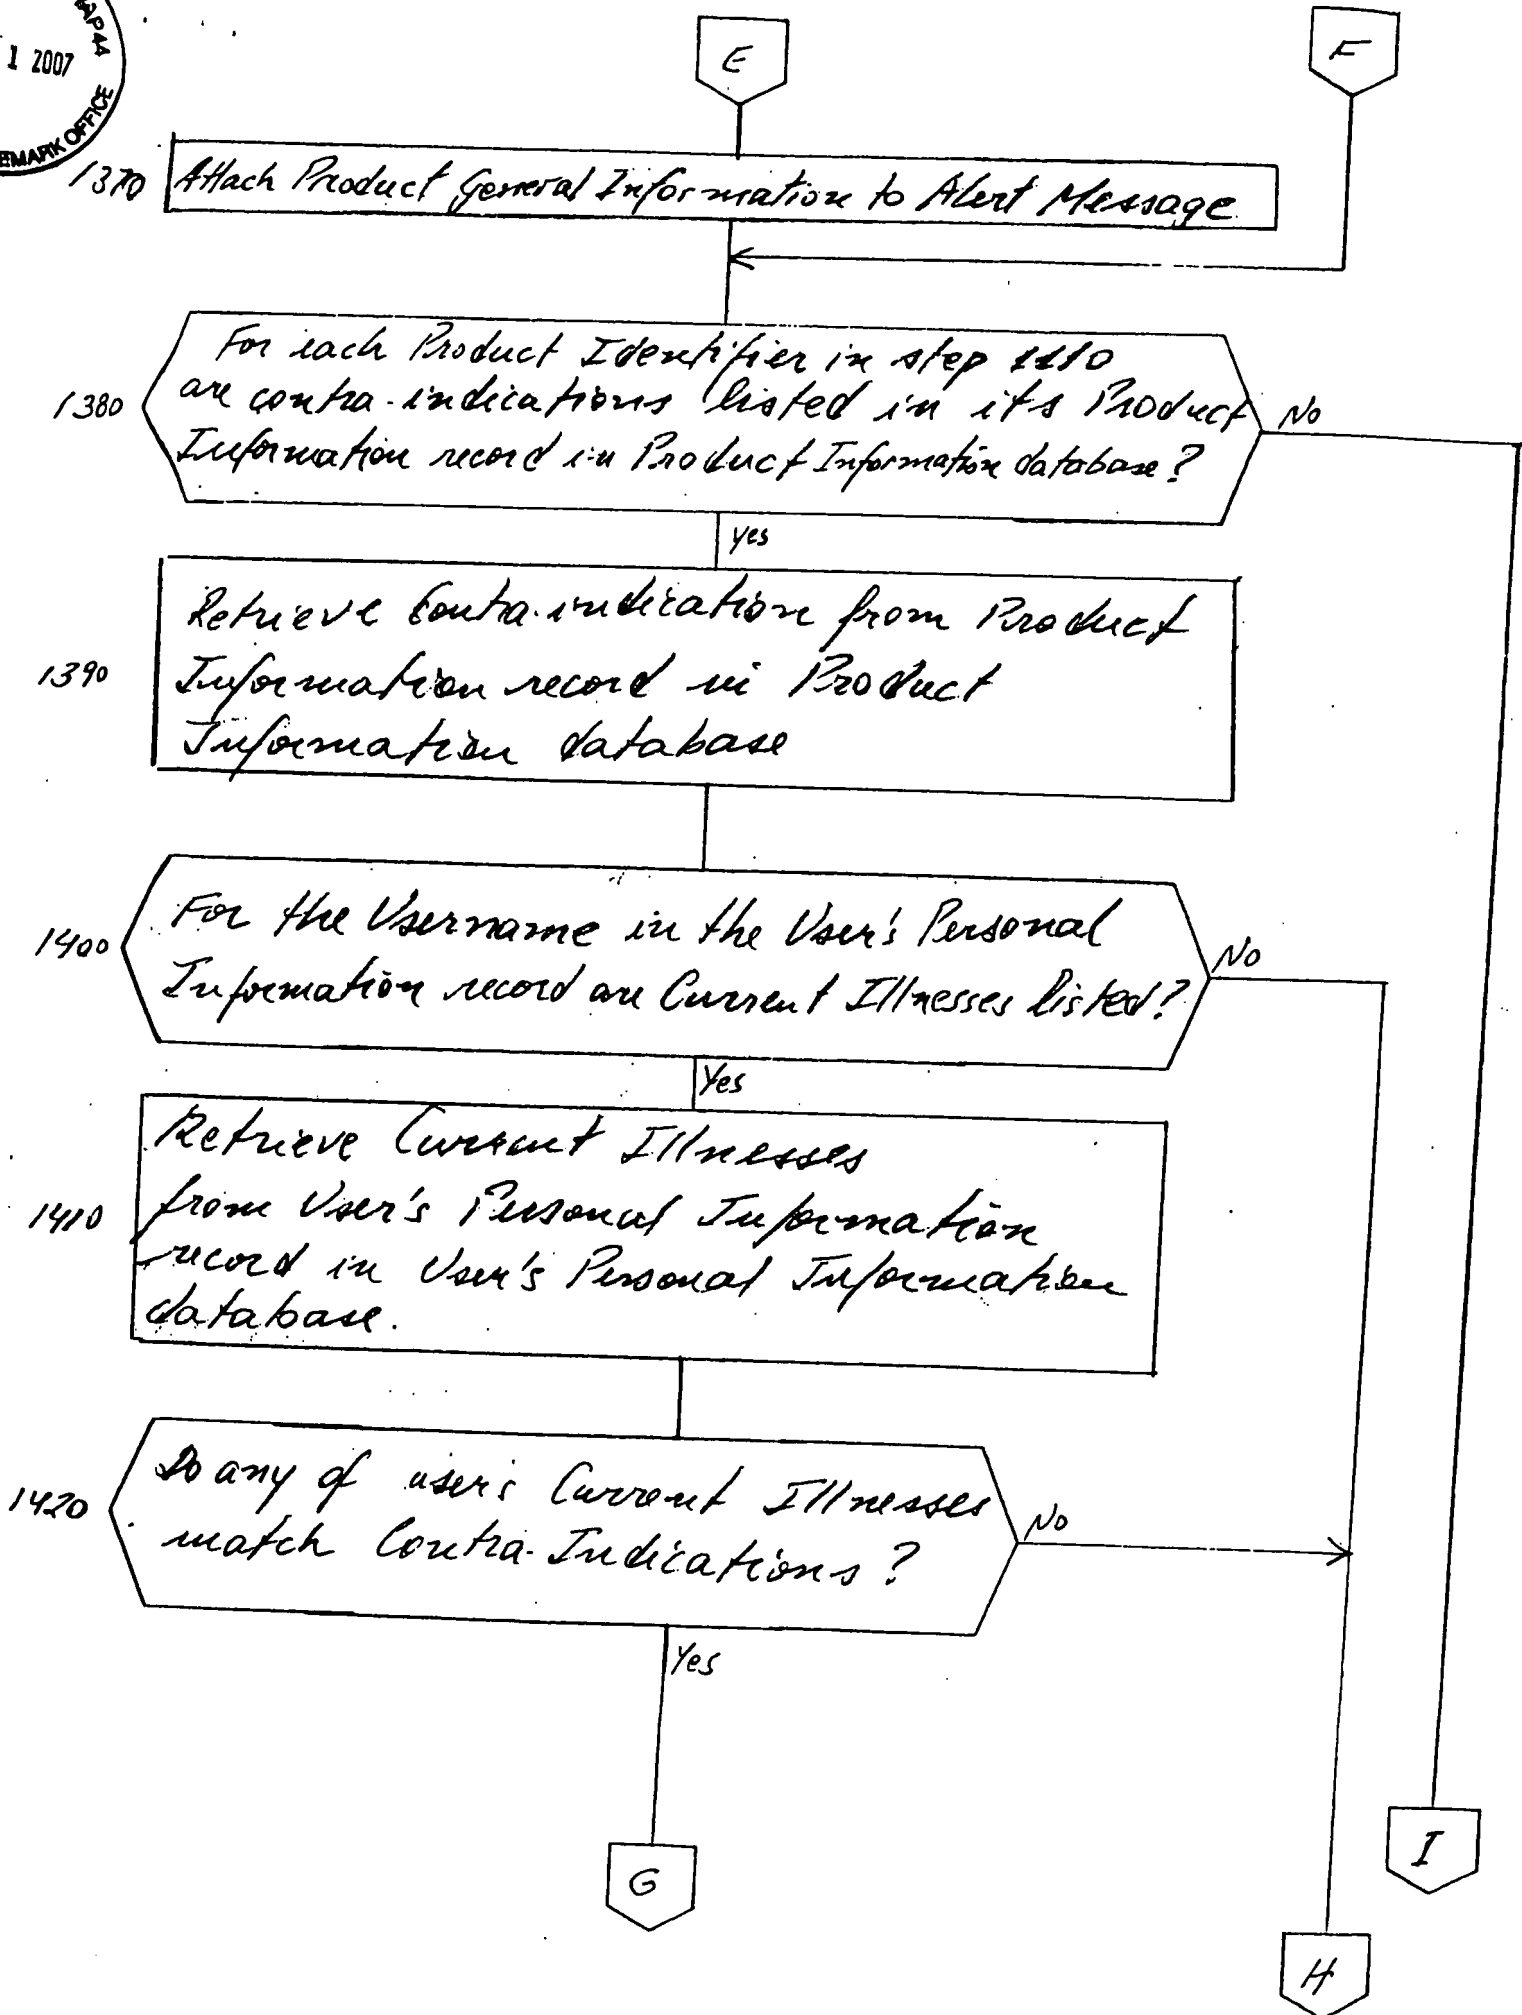 1 2007
EMARK OFFICE
E
F
1370
Attach Product General Information to Alert Message
1380
For each Product Identifier in step 1110
are contra-indications listed in its Product
Information record in Product Information database?
No
yes
1390
Retrieve Contra-indication from Product
Information record in Product
Information database
1400
For the Username in the User's Personal
Information record are Current Illnesses listed?
No
Yes
1410
Retrieve Current Illnesses
from User's Personal Information
record in User's Personal Information
database.
1420
Do any of user's Current Illnesses
match Contra-Indications?
No
Yes
G
I
H